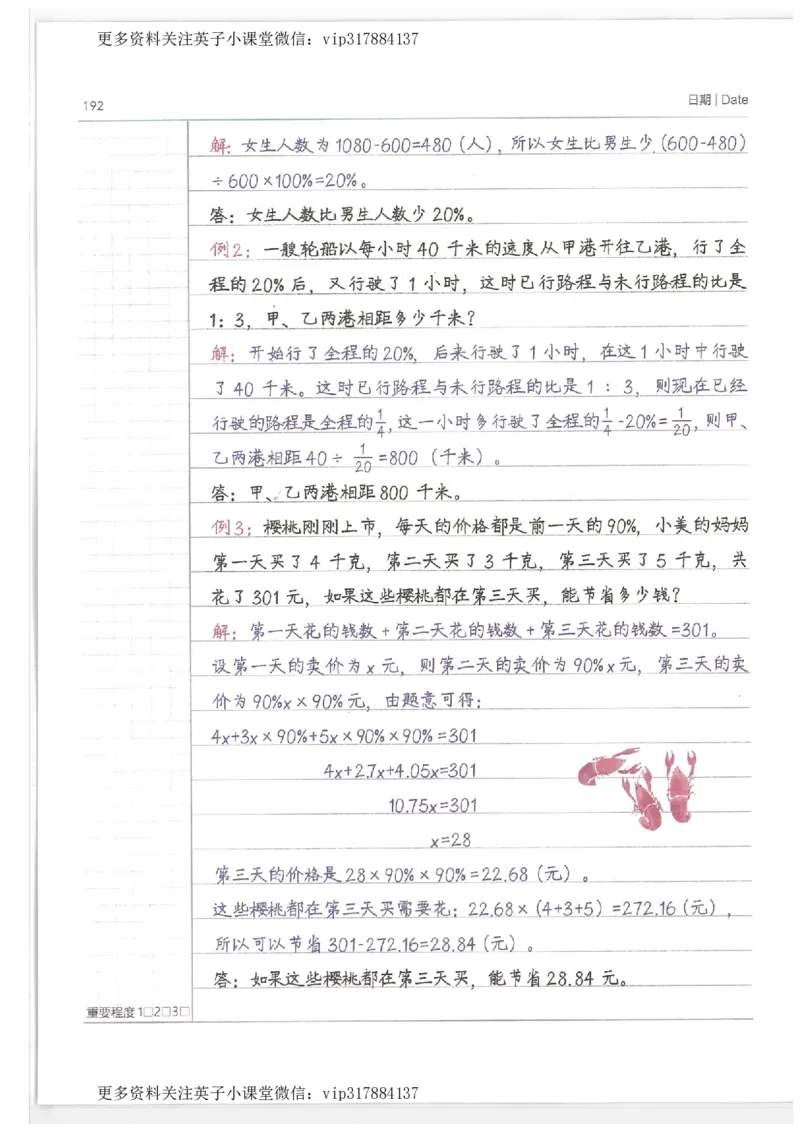 更多资料关注英子小课堂微信：vip317884137
192
日期 | Date
解：女生人数为1080-600=480（人），所以女生比男生少（600-480）
÷600×100%=20%。
答：女生人数比男生人数少20%。
例2：一艘轮船以每小时40千米的速度从甲港开往乙港，行了全
程的20%后，又行驶了1小时，这时已行路程与未行路程的比是
1：3，甲、乙两港相距多少千米？
解：开始行了全程的20%，后来行驶了1小时，在这1小时中行驶
了40千米。这时已行路程与未行路程的比是1：3，则现在已经
行驶的路程是全程的1/4，这一小时多行驶了全程的1/4-20%=1/20，则甲、
乙两港相距40÷1/20=800（千米）。
答：甲、乙两港相距800千米。
例3：樱桃刚刚上市，每天的价格都是前一天的90%，小美的妈妈
第一天买了4千克，第二天买了3千克，第三天买了5千克，共
花了301元，如果这些樱桃都在第三天买，能节省多少钱？
解：第一天花的钱数+第二天花的钱数+第三天花的钱数=301。
设第一天的卖价为x元，则第二天的卖价为90%x元，第三天的卖
价为90%x×90%元，由题意可得：
4x+3x×90%+5x×90%×90%=301
4x+2.7x+4.05x=301
10.75x=301
x=28
第三天的价格是28×90%×90%=22.68（元）。
这些樱桃都在第三天买需要花：22.68×（4+3+5）=272.16（元），
所以可以节省301-272.16=28.84（元）。
答：如果这些樱桃都在第三天买，能节省28.84元。
重要程度1□2□3□
更多资料关注英子小课堂微信：vip317884137